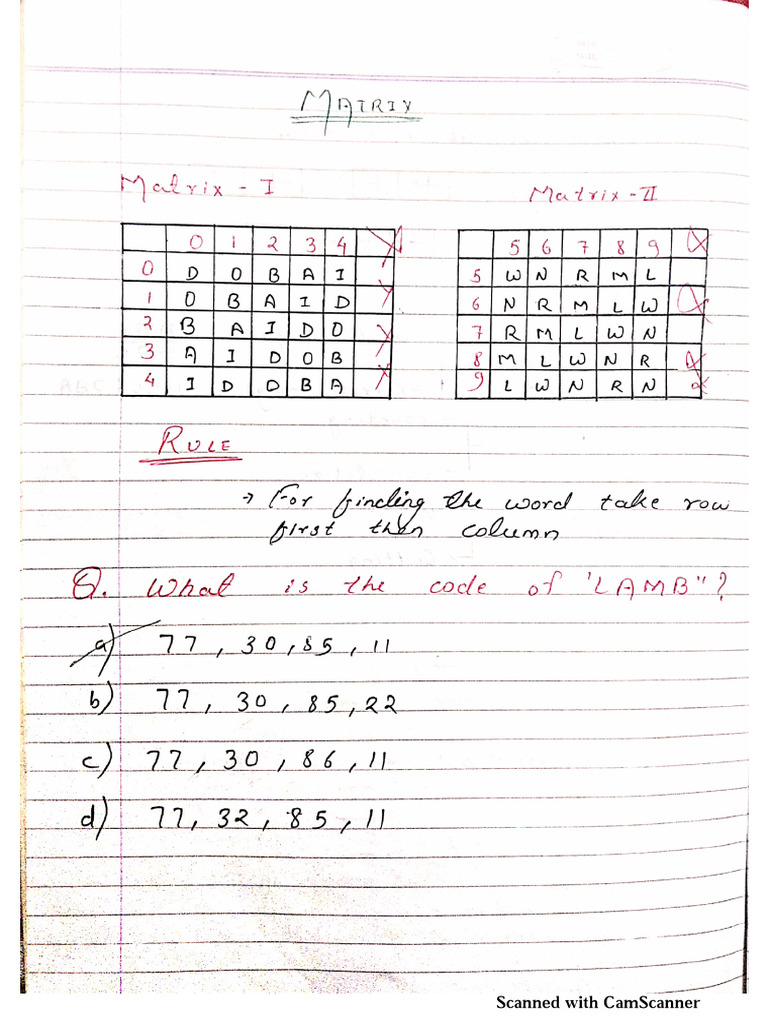 MATRIX
Matrix - I
Matrix - II
0 1 2 3 4
0 D O B A I
1 O B A I D
2 B A I D O
3 A I D O B
4 I D O B A
5 6 7 8 9
5 W N R M L
6 N R M L W
7 R M L W N
8 M L W N R
9 L W N R N
RULE
→ For finding the word take row
first then column
Q. What is the code of "LAMB"?
a) 77, 30, 85, 11
b) 77, 30, 85, 22
c) 77, 30, 86, 11
d) 77, 32, 85, 11
Scanned with CamScanner